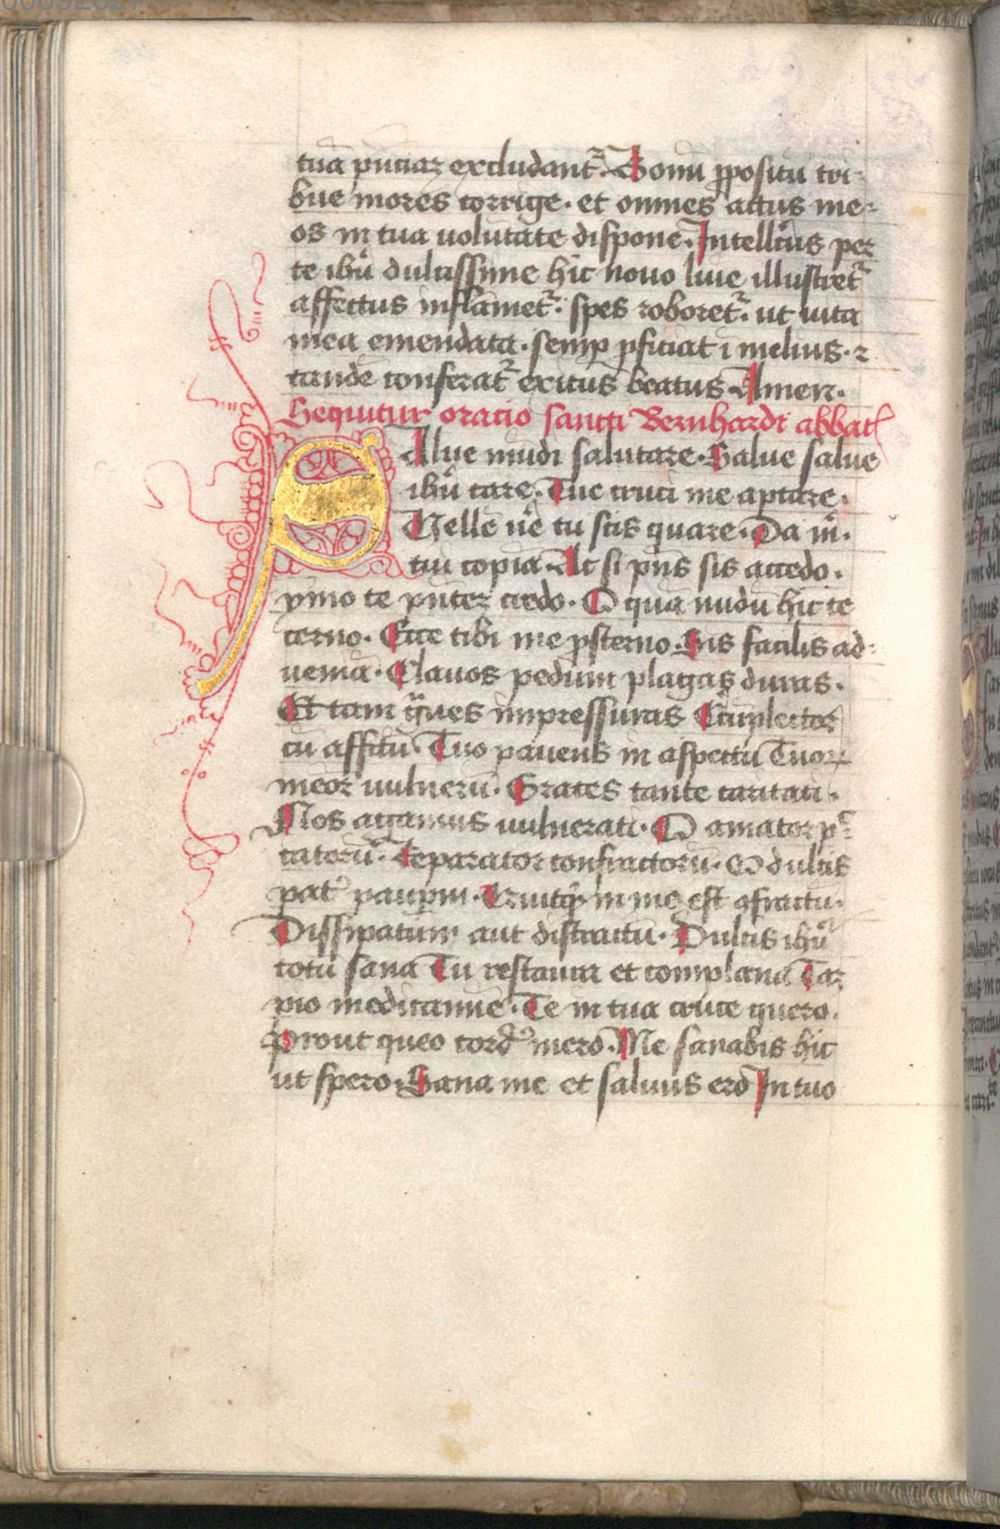 tuā pn̄ciaꝫ excludant᷑. Bonū ꝓpositū tri-
bue mores corrige. et om̄nes actus me-
os in tua volūtate dispone. Intellc̄us per
te ihū dulcissime hic nouo luīe illustret᷑
affectus inflamet᷑. spes roboret᷑. ut uita
mea emendata. semꝑ ꝓficiat ī melius. ⁊
tandē conferat᷑ exitus beatus Amen.
Sequitur oracio sancti Bernhardi abbatꝭ
SAlue mūdi salutare. Salue salue
ihū care. Cruci tue me aptare.
Uelle vē tu scis quare. Da m̄.
tui copiā. Ac si pn̄s sis accedo.
ymo te pn̄tez credo. O quā nudū hic te
cerno. Ecce tibi me ꝓsterno. Sis facilis ad
veniā. Clauos pedum plagas duras.
Et tam gͣues impressuras Circūplector
cū affc̄tu. Tuo pauens in aspectu Tuoꝝ
meoꝝ uulnerū. Grates tante caritati.
Nos agamus uulnerati. O amator pec-
catorū. Reparator confractorū. O dulcis
pat᷑ pauꝑum. Quitqͥd in me est ꝯfractū.
Dissipatum aut distractū. Dulcis ihū
totū sana Tu restaura et complana Tāꝫ
pio medicamīe. Te in tua cruce quero.
Prout queo corde mero. Me sanabis hic
ut spero. Sana me et saluus ero In tuo